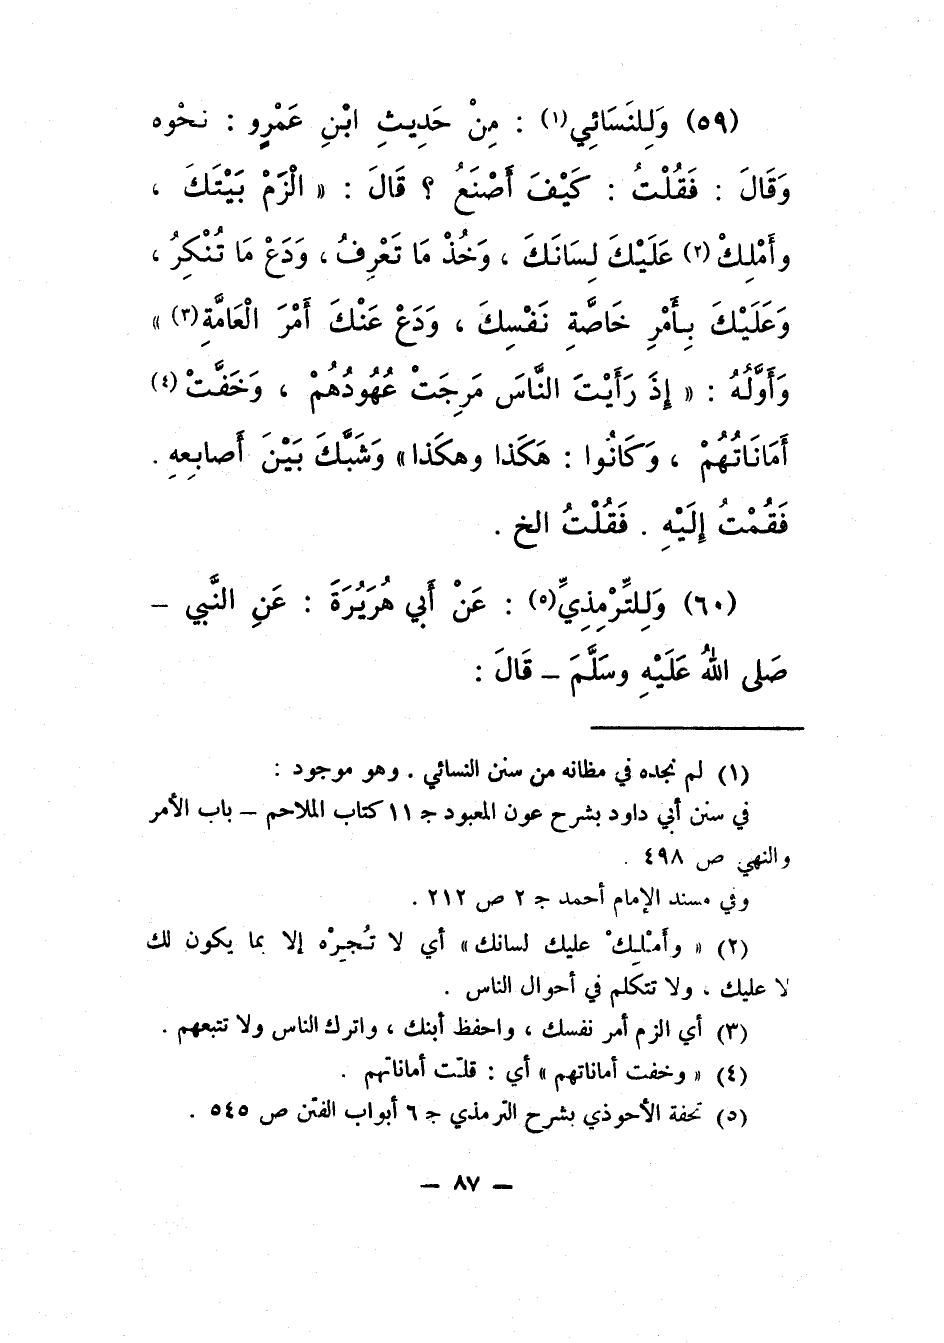 (٥٩) وَلِلنَسَائِي(١) : مِنْ حَدِيثِ ابْنِ عَمْرٍو : نحْوه
وَقَالَ : فَقُلْتُ : كَيْفَ أَصْنَعُ ؟ قَالَ : « الْزَمْ بَيْتَكَ ،
وأَمْلِكْ (٢) عَلَيْكَ لِسَانَكَ ، وَخُذْ مَا تَعْرِفُ ، وَدَعْ مَا تُنْكِرُ ،
وَعَلَيْكَ بِأَمْرِ خَاصَّةِ نَفْسِكَ ، وَدَعْ عَنْكَ أَمْرَ الْعَامَّةِ(٣) »
وَأَوَّلُهُ : « إِذَ رَأَيْتَ النَّاسَ مَرِجَتْ عُهُودُهُمْ ، وَخَفَّتْ (٤)
أَمَانَاتُهُمْ ، وَكَانُوا : هَكَذا وهكَذا » وَشَبَّكَ بَيْنَ أَصابِعهِ .
فَقُمْتُ إِلَيْهِ . فَقُلْتُ الخ .
(٦٠) وَلِلتِّرْمِذِيِّ(٥) : عَنْ أَبي هُرَيْرَةَ : عَنِ النَّبي –
صَلى اللهُ عَلَيْهِ وسَلَّمَ – قَالَ :
(١) لم نجده في مظانه من سنن النسائي . وهو موجود :
في سنن أبي داود بشرح عون المعبود جـ ١١ كتاب الملاحم – باب الأمر
والنهي ص ٤٩٨ .
وفي مسند الإمام أحمد جـ ٢ ص ٢١٢ .
(٢) « وأَمْلِكْ عليك لسانك » أي لا تُجِرْه إلا بما يكون لك
لا عليك ، ولا تتكلم في أحوال الناس .
(٣) أي الزم أمر نفسك ، واحفظ أبنك ، واترك الناس ولا تتبعهم .
(٤) « وخفت أماناتهم » أي : قلّت أماناتهم .
(٥) تحفة الأحوذي بشرح الترمذي جـ ٦ أبواب الفتن ص ٥٤٥ .
– ٨٧ –